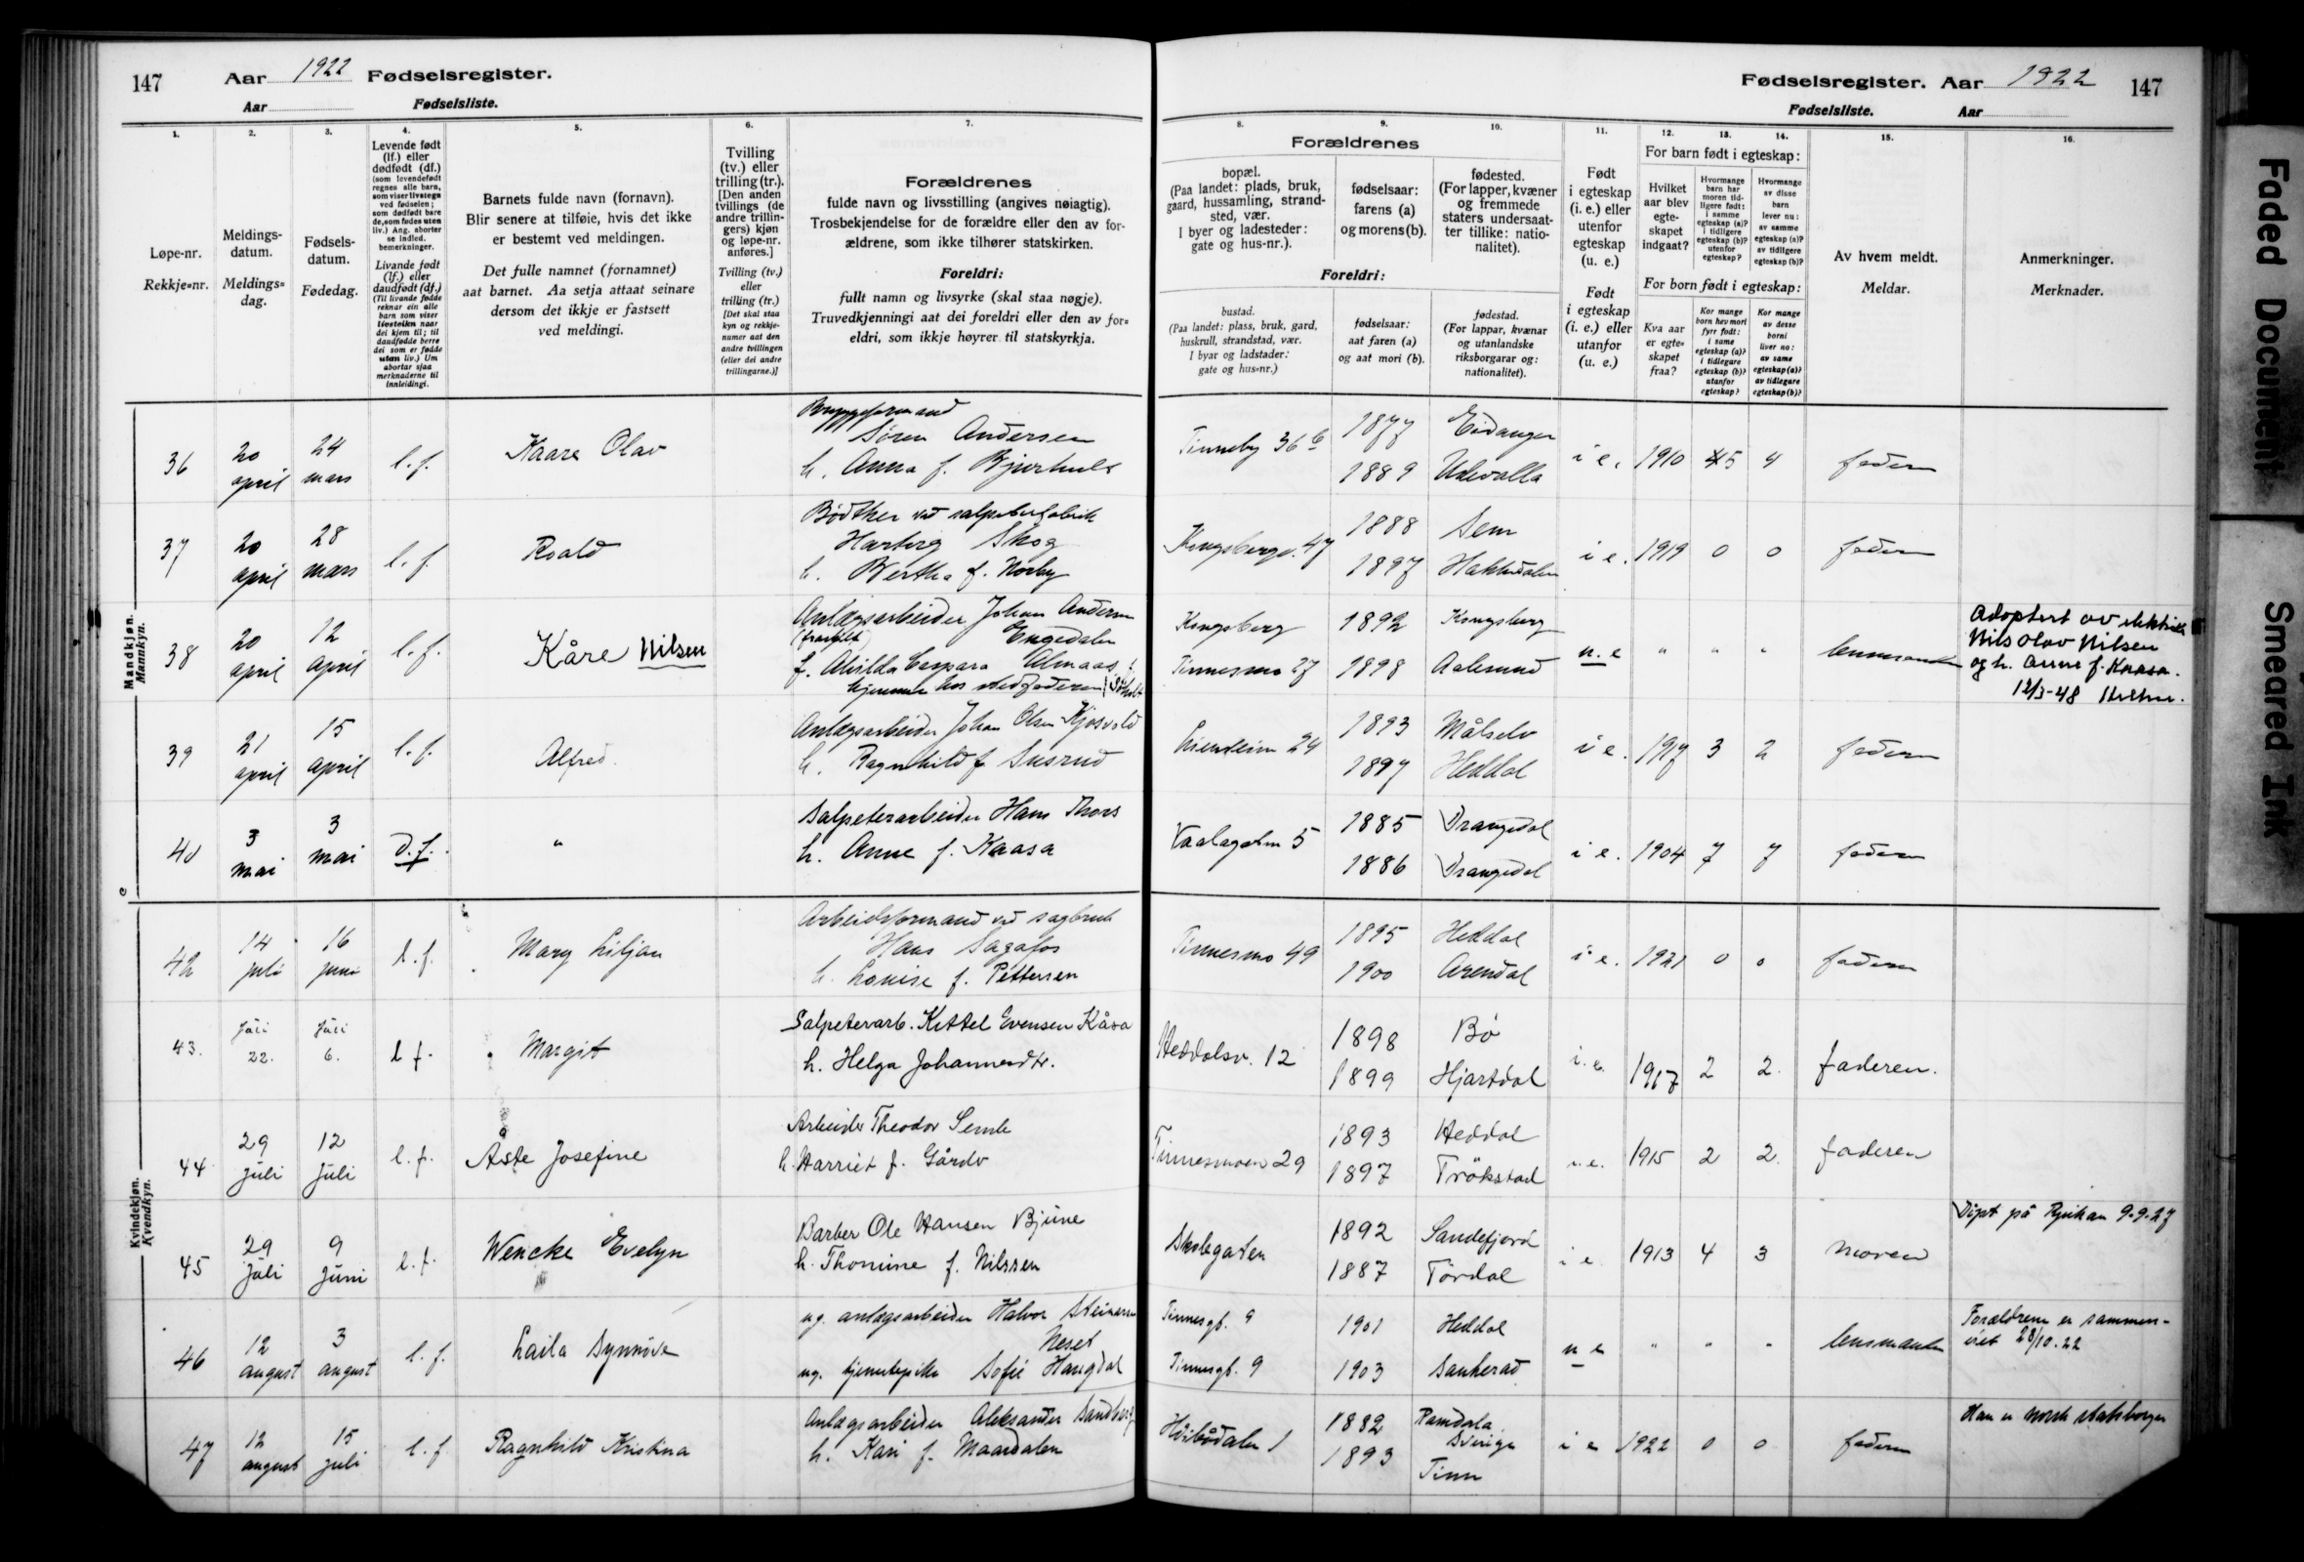 147 Aar 1922 Fødselsregister.
Aar Fødselsliste.
Fødselsregister. Aar 1922 147
Fødselsliste. Aar
1.
Løpe-nr.
Rekkje=nr.
2.
Meldings-
datum.
Meldings=
dag.
3.
Fødsels-
datum.
Fødedag.
4.
Levende født
(lf.) eller
dødfødt (df.)
(som levendefødt
regnes alle barn,
som viser livstegn
ved fødselen;
som dødfødt bare
de, som fødes uten
liv.) Ang. aborter
se indled.
bemerkninger.
Livande født
(lf.) eller
daudfødt (df.)
(Til livande fødde
reknar ein alle
barn som viser
livsteikn naar
dei kjem til; til
daudfødde berre
dei som er fødde
utan liv.) Um
abortar sjaa
merknaderne til
innleidingi.
5.
Barnets fulde navn (fornavn).
Blir senere at tilføie, hvis det ikke
er bestemt ved meldingen.
Det fulle namnet (fornamnet)
aat barnet. Aa setja attaat seinare
dersom det ikkje er fastsett
ved meldingi.
6.
Tvilling
(tv.) eller
trilling (tr.).
[Den anden
tvillings (de
andre trillin-
gers) kjøn
og løpe-nr.
anføres.]
Tvilling (tv.)
eller
trilling (tr.)
[Det skal staa
kyn og rekkje-
numer aat den
andre tvillingen
(eller dei andre
trillingarne.)]
7.
Forældrenes
fulde navn og livsstilling (angives nøiagtig).
Trosbekjendelse for de forældre eller den av for-
ældrene, som ikke tilhører statskirken.
Foreldri:
fullt namn og livsyrke (skal staa nøgje).
Truvedkjenningi aat dei foreldri eller den av for=
eldri, som ikkje høyrer til statskyrkja.
Forældrenes
8.
bopæl.
(Paa landet: plads, bruk,
gaard, hussamling, strand-
sted, vær.
I byer og ladesteder:
gate og hus-nr.).
9.
fødselsaar:
farens (a)
og morens (b).
10.
fødested.
(For lapper, kvæner
og fremmede
staters undersaat-
ter tillike: natio-
nalitet).
Foreldri:
bustad.
(Paa landet: plass, bruk, gard,
huskrull, strandstad, vær.
I byar og ladstader:
gate og hus=nr.)
fødselsaar:
aat faren (a)
og aat mori (b).
fødestad.
(For lappar, kvænar
og utanlandske
riksborgarar og:
nationalitet).
11.
Født
i egteskap
(i. e.) eller
utenfor
egteskap
(u. e.)
Født
i egteskap
(i. e.) eller
utanfor
(u. e.)
12. 13. 14.
For barn født i egteskap:
Hvilket
aar blev
egte-
skapet
indgaat?
Hvormange
barn har
moren tid-
ligere født:
i samme
egteskap (a)?
i tidligere
egteskap (b)?
utenfor
egteskap?
Hvormange
av disse
barn
lever nu:
av samme
egteskap (a)?
av tidligere
egteskap (b)?
For born født i egteskap:
Kva aar
er egte=
skapet
fraa?
Kor mange
born hev mori
fyrr født:
i same
egteskap (a)?
i tidlegare
egteskap (b)?
utanfor
egteskap?
Kor mange
av desse
borni
liver no:
av same
egteskap (a)?
av tidlegare
egteskap (b)?
15.
Av hvem meldt.
Meldar.
16.
Anmerkninger.
Merknader.
Mandkjøn.
Mannkyn.
36 20 april 24 mars l. f. Kaare Olav
Bryggeformand
Søren Andersen
h. Anna f.
1877 Eidanger
1889 Udevalla
i e. 1910 5 4 faderen
37 20 april 28 mars l. f. Roald
Bødtker ved salpeterfabrik
Skog
h. Bertha f. Norby
Kongsbergv. 47
1888 Sem
1897 Hakkedalen
i e. 1919 0 0 faderen
38 20 april 12 april l. f. Kåre Nilsen
Anlægsarbeider Johan Andersen
(fraskilt) Engedalen
f. Alvilda Caspara Almaas
hjemme hos stedfaderen
Kongsberg 1892 Kongsberg
Tinnesmo 27 1898 Aalesund
u. e " " " lensmanden
Adoptert av
Nils Olav Nilsen
og h. Anne f. Kaasa.
12/3-48
39 21 april 15 april l. f. Alfred.
Anlægsarbeider Johan Olsen Kjosvold
h. Ragnhild f. Susrud
24
1893 Målselv
1897 Heddal
i e. 1917 3 2 faderen
40 3 mai 3 mai d. f. "
Salpeterarbeider Hans Thors
h. Anne f. Kaasa
5
1885 Drangedal
1886 Drangedal
i e. 1904 7 7 faderen
Kvindekjøn.
Kvendkyn.
42 14 juli 16 juni l. f. Mary Liljan
Arbeidsformand ved sagbruk
Hans Sagafos
h. Louise f. Pettersen
Tinnesmo 49
1895 Heddal
1900 Arendal
i e. 1921 0 0 faderen
43. Juli 22. Juli 6. l f. Margit
Salpeterarb. Kittel Evensen Kåsa
h. Helga Johannesdtr.
Heddalsv. 12
1898 Bø
1899 Hjartdal
i. e. 1917 2 2. faderen.
44 29 Juli 12 Juli l. f. Åste Josefine
Arbeider Theodor Semb
h. Harriet f. Gårdv
Tinnesmoen 29
1893 Heddal
1897 Trøkstad
i. e. 1915 2 2. faderen
45 29 Juli 9 Juni l. f. Wencke Evelyn
Barber Ole Hansen Bjune
h. Thomine f. Nilssen
Skolegaten
1892 Sandefjord
1887 Tørdal
i e 1913 4 3 moren
Døpt på Rjukan 9.9.27
46 12 august 3 august l. f. Laila Synnøve
ug. anlægsarbeider Halvor Steinarsen
Neset
ug. tjenestepike Sofie Haugdal
Tinnesgt. 9 1901 Heddal
Tinnesgt. 9 1903 Sauherad
u e " " " lensmanden
Forældrene er sammen-
viet 28/10.22
47 12 august 15 juli l. f Ragnhild Kristina
Anlægsarbeider Aleksander Sandberg
h. Kari f. Maardalen
Hvibådalen 1
1882 Ramdala Sverige
1893 Tinn
i e 1922 0 0 faderen
Han er norsk statsborger
Faded Document
Smeared Ink